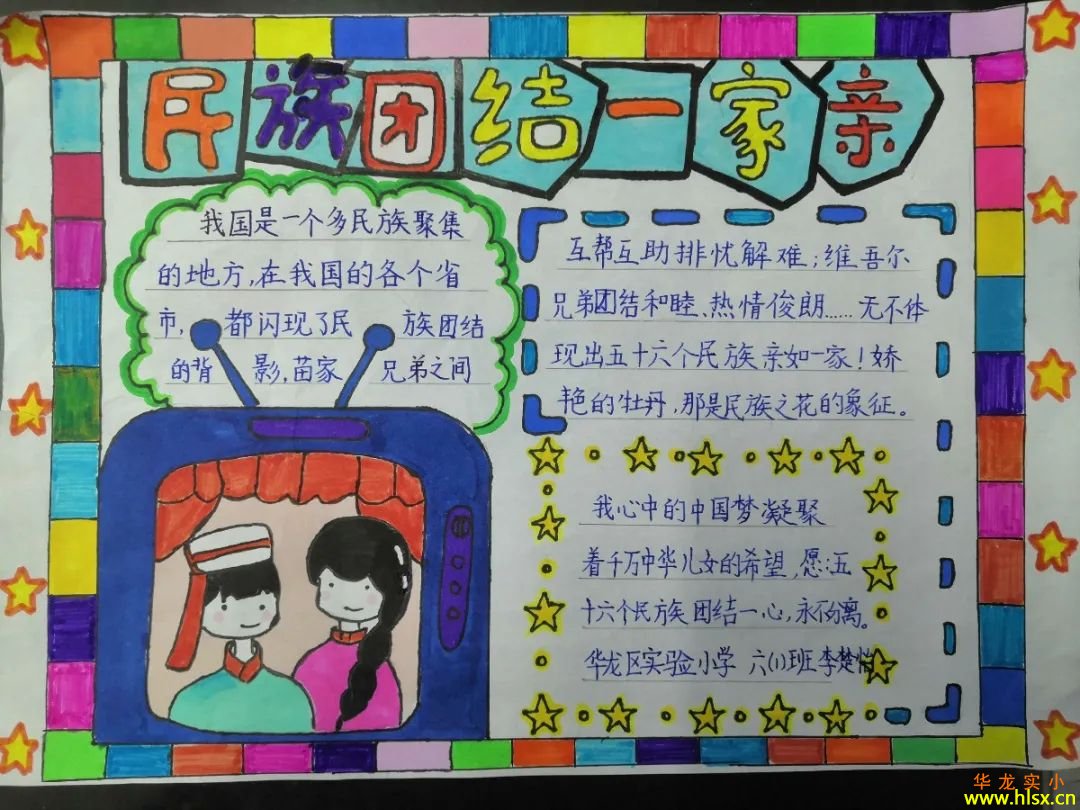 民族团结一家亲
我国是一个多民族聚集
的地方,在我国的各个省
市,都闪现了民族团结
的背影,苗家兄弟之间
互帮互助排忧解难;维吾尔
兄弟团结和睦、热情俊朗……无不体
现出五十六个民族亲如一家!娇
艳的牡丹,那是民族之花的象征。
我心中的中国梦凝聚
着千万中华儿女的希望,愿:五
十六个民族团结一心,永不分离。
华龙区实验小学 六(1)班 李楚怡
华龙实小
www.hlsx.cn